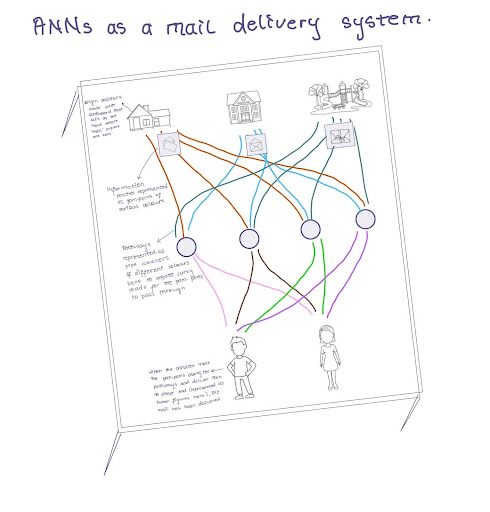 ANNs as a mail delivery system.
origin stations
made with
cardboard that
acts as the
input where
"mail" copies
are sent
Information
packet represented
as pom-poms of
various colours
Pathways
represented as
pipe cleaners
of different colours
bent to create curvy
roads for the pom-poms
to pass through
when the children move
the pom-poms along the
pathways and deliver them
to other end (represented as
human figures here), the
mail has been delivered